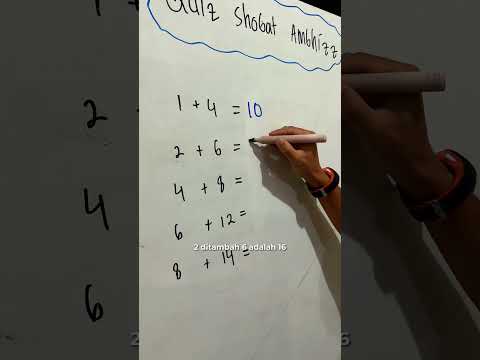 Quiz Shobat Ambhizz
1 + 4 = 10
2 + 6 =
4 + 8 =
6 + 12 =
8 + 14 =
2 ditambah 6 adalah 16